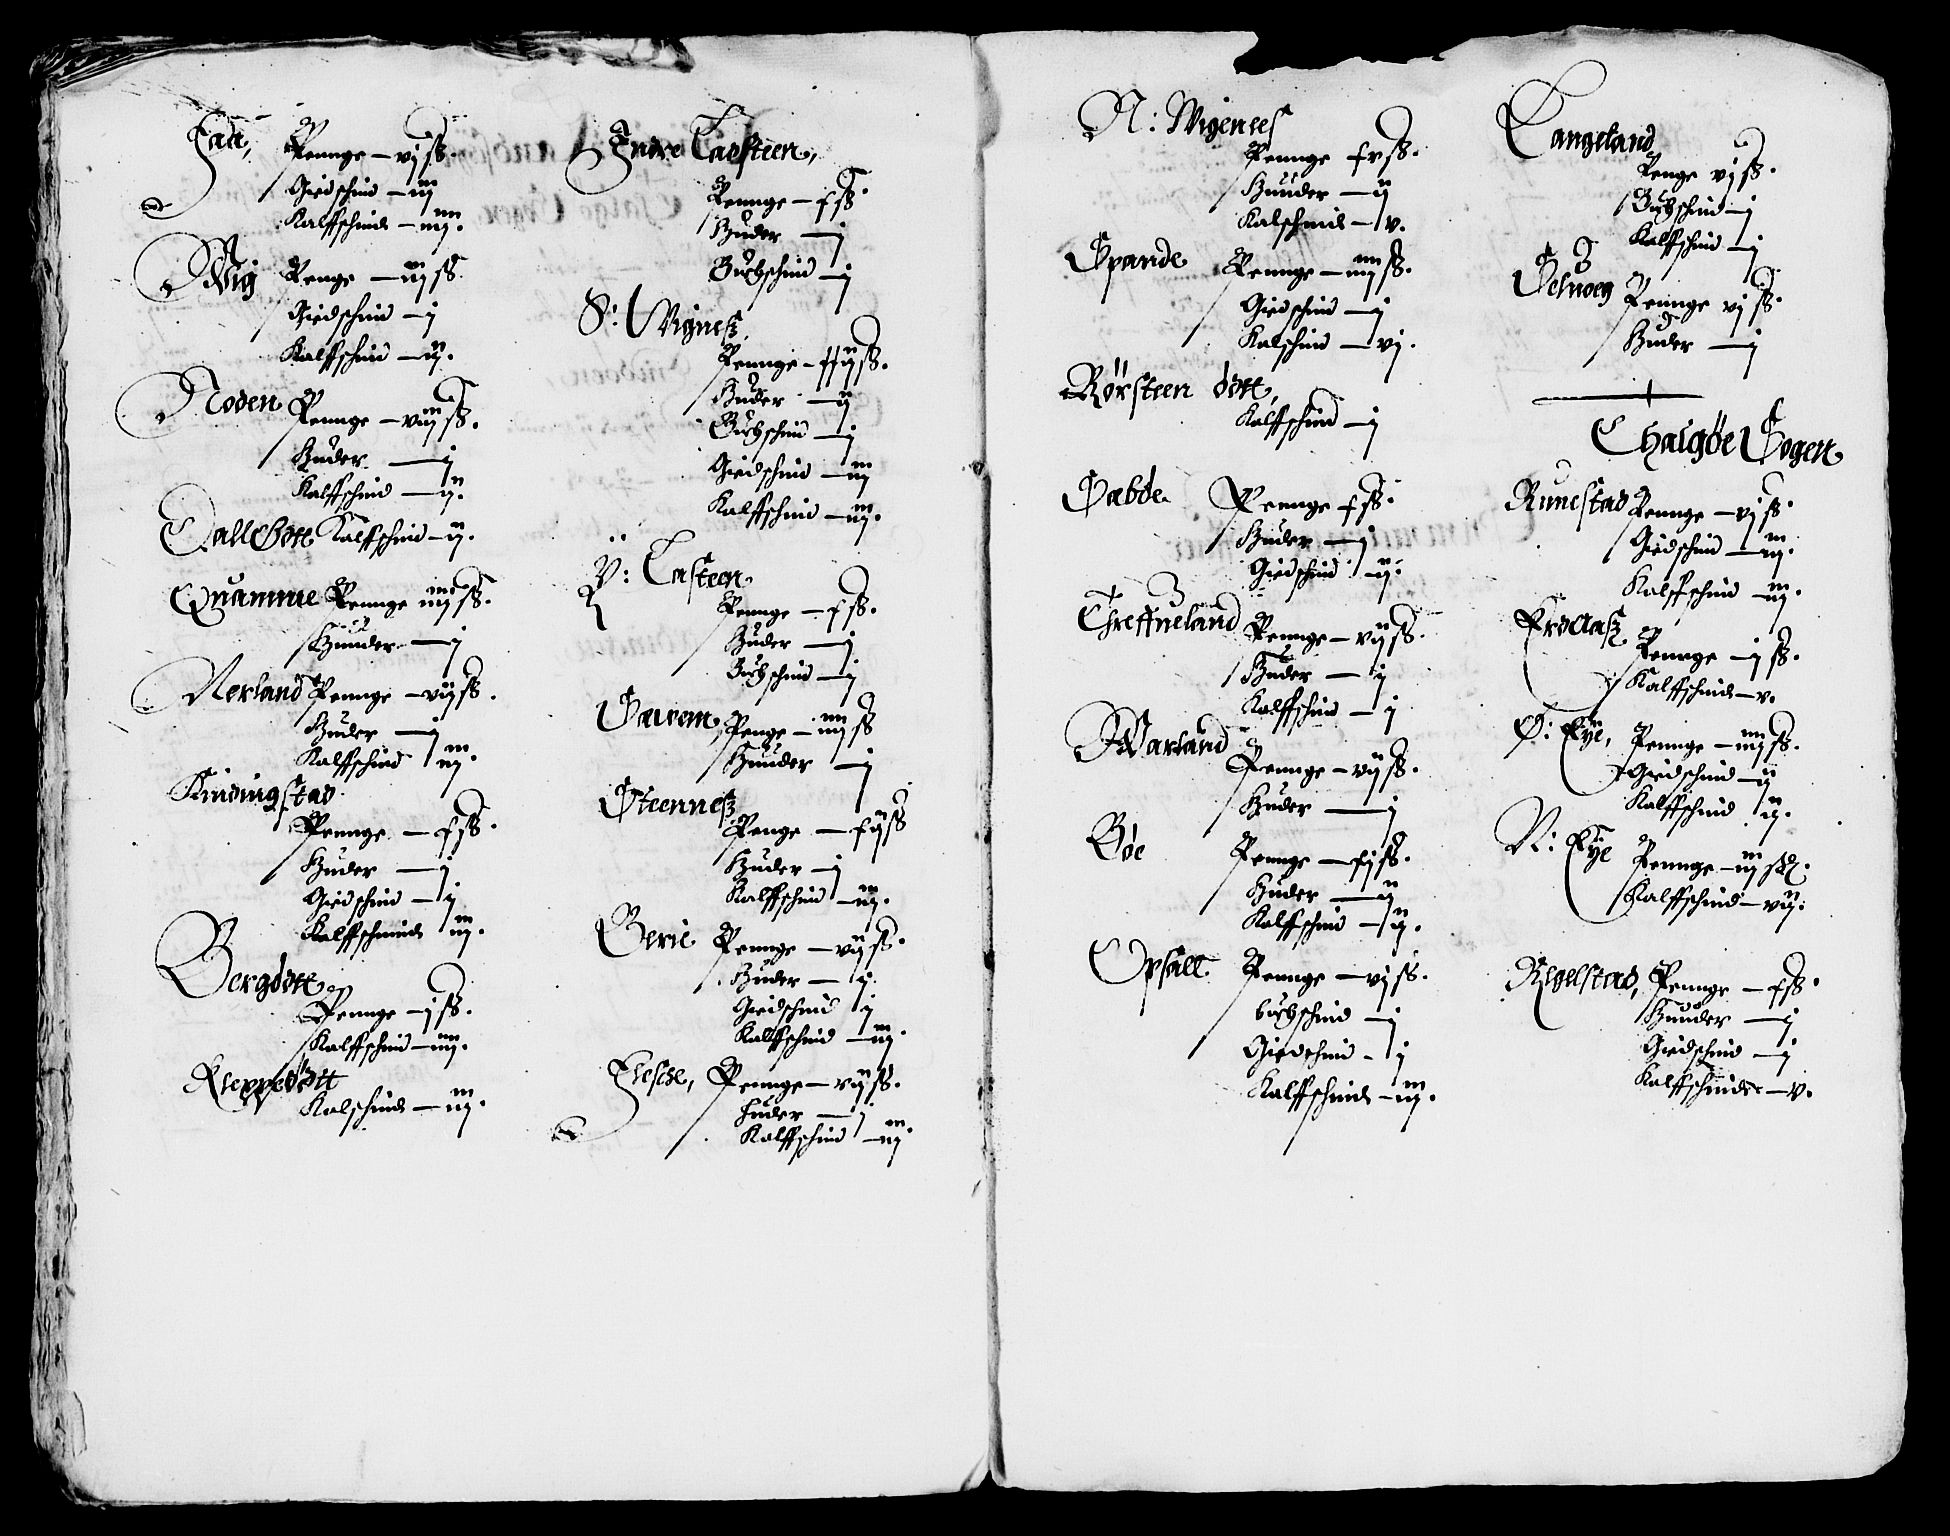 Fadt, Pennge — vj ß.
Giedschind — iij
Kalffschind — iiij.
Wig Penge — iij ß
Giedschind — j
Kalffschind — ij.
Noden Pennge — viij ß.
Huder — j
Kalffschind — ij.
Dallbött Kalffschind — ij.
Quamme Pennge iiij ß.
Huuder — j
Nerland Pennge — vij ß.
Huder — j
Kalffschind iij.
Kindingstad
Pennge — x ß.
Huder — j
Giedschind — j
Kalffschinds iij.
Bergbött
Pennge — j ß.
Kalffschind — iiij.
Kleppebött
Kalschinds — iij.
Indre Caðsteen,
Pennge — x ß
Huder — j
Buchschind — j
S: Vigneß
Pennge — xxij ß.
Huder — ij
Buchschind — j
Giedschind — iij
Kalffschind — iij.
Y: Casteen
Pennge — x ß.
Huder — j
Buchschind — j
Sævem Penge — iiij ß
Huuder — j
Steenneß
Penge — xij ß
Huder — j
Kalffschind — iij.
Berie Pennge — vij ß.
Huder — j.
Giedschind j
Kalffschind — iij.
Flesche, Pennge — vij ß.
Huder — j
Kalffschind — iij.
N: Wigenees
Pennge xv ß.
Huuder — ij
Kalschinds — v.
Spande Pennge — iiij ß.
Giedschind — j
Kalschind — vj.
Rörsteen bött,
Kalffschind — j
Sæbde Pennge x ß.
Huder — j
Giedschind ij.
Threffneland Pennge — vij ß.
Huder — j
Kalffschind — j
Warland
Pennge — vij ß.
Huder — j
Bøe Pennge — xj ß.
Huder — ij
Kalffschind — ij.
Opsall Pennge — vj ß.
buchschind — j
Giedschind — j
Kalffschinds — iij.
Langeland
Penge vj ß.
Buchschind — j
Kalffschind — j
Selvoeg Pennge vj ß.
Huder — j
Thalgöe Sogen
Runestad Pennge — vj ß.
Giedschind — iij.
Kalffschind — iij.
Erðclaß
Pennge — j ß.
Kalffschinds — v.
Ö: Eÿe, Pennge — iiij ß.
Giedschind — ij
Kalffschind ij.
N: Eÿe Pennge — iij ß.
Kalffschind — vij.
Reelstad, Pennge — x ß.
Huuder — j
Giedschind — j
Kalffschinder — v.